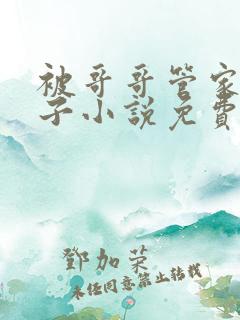 被哥哥管家
子小說免費
鄧加榮
未经同意禁止转载